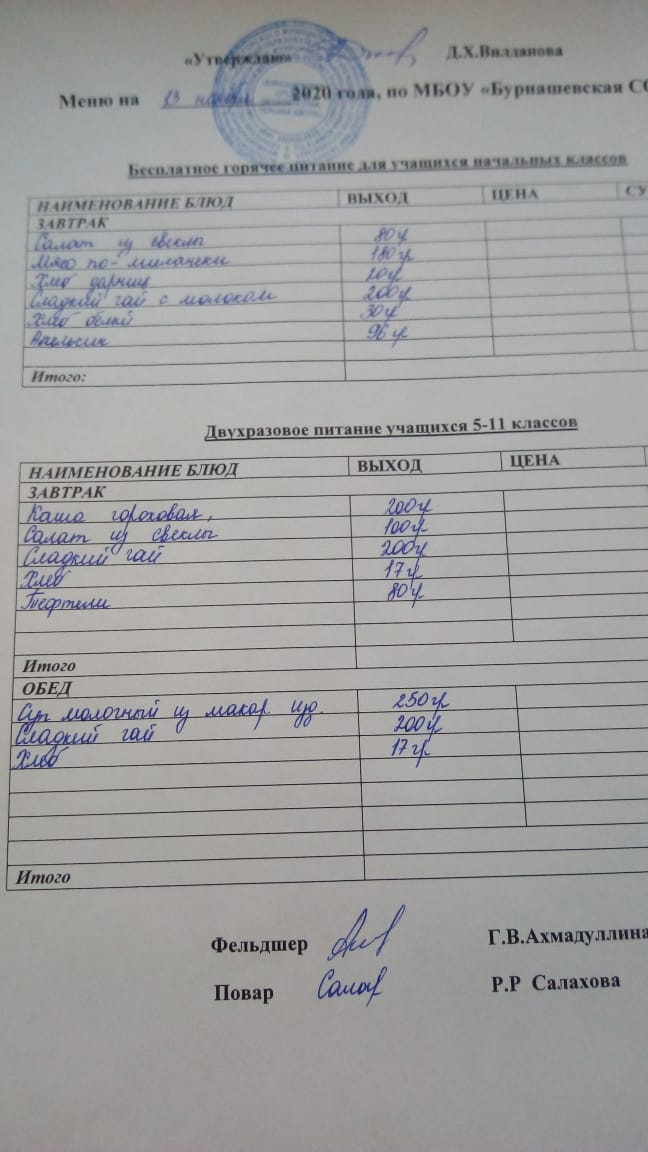 «Утверждаю» Д.Х.Вилданова
Меню на 13 ноября 2020 года, по МБОУ «Бурнашевская СО
Бесплатное горячее питание для учащихся начальных классов
НАИМЕНОВАНИЕ БЛЮД ВЫХОД ЦЕНА СУ
ЗАВТРАК
Салат из свеклы 80гр
Мясо по-милански 180гр
Хлеб дарниц 20гр
Сладкий чай с молоком 200гр
Хлеб белый 30гр
Апельсин 96гр
Итого:
Двухразовое питание учащихся 5-11 классов
НАИМЕНОВАНИЕ БЛЮД ВЫХОД ЦЕНА
ЗАВТРАК
Каша гороховая, 200гр
Салат из свеклы 100гр
Сладкий чай 200гр
Хлеб 17гр
Тефтели 80гр
Итого
ОБЕД
Суп молочный из макар. изд. 250гр
Сладкий чай 200гр
Хлеб 17гр
Итого
Фельдшер Г.В.Ахмадуллина
Повар Салах Р.Р Салахова